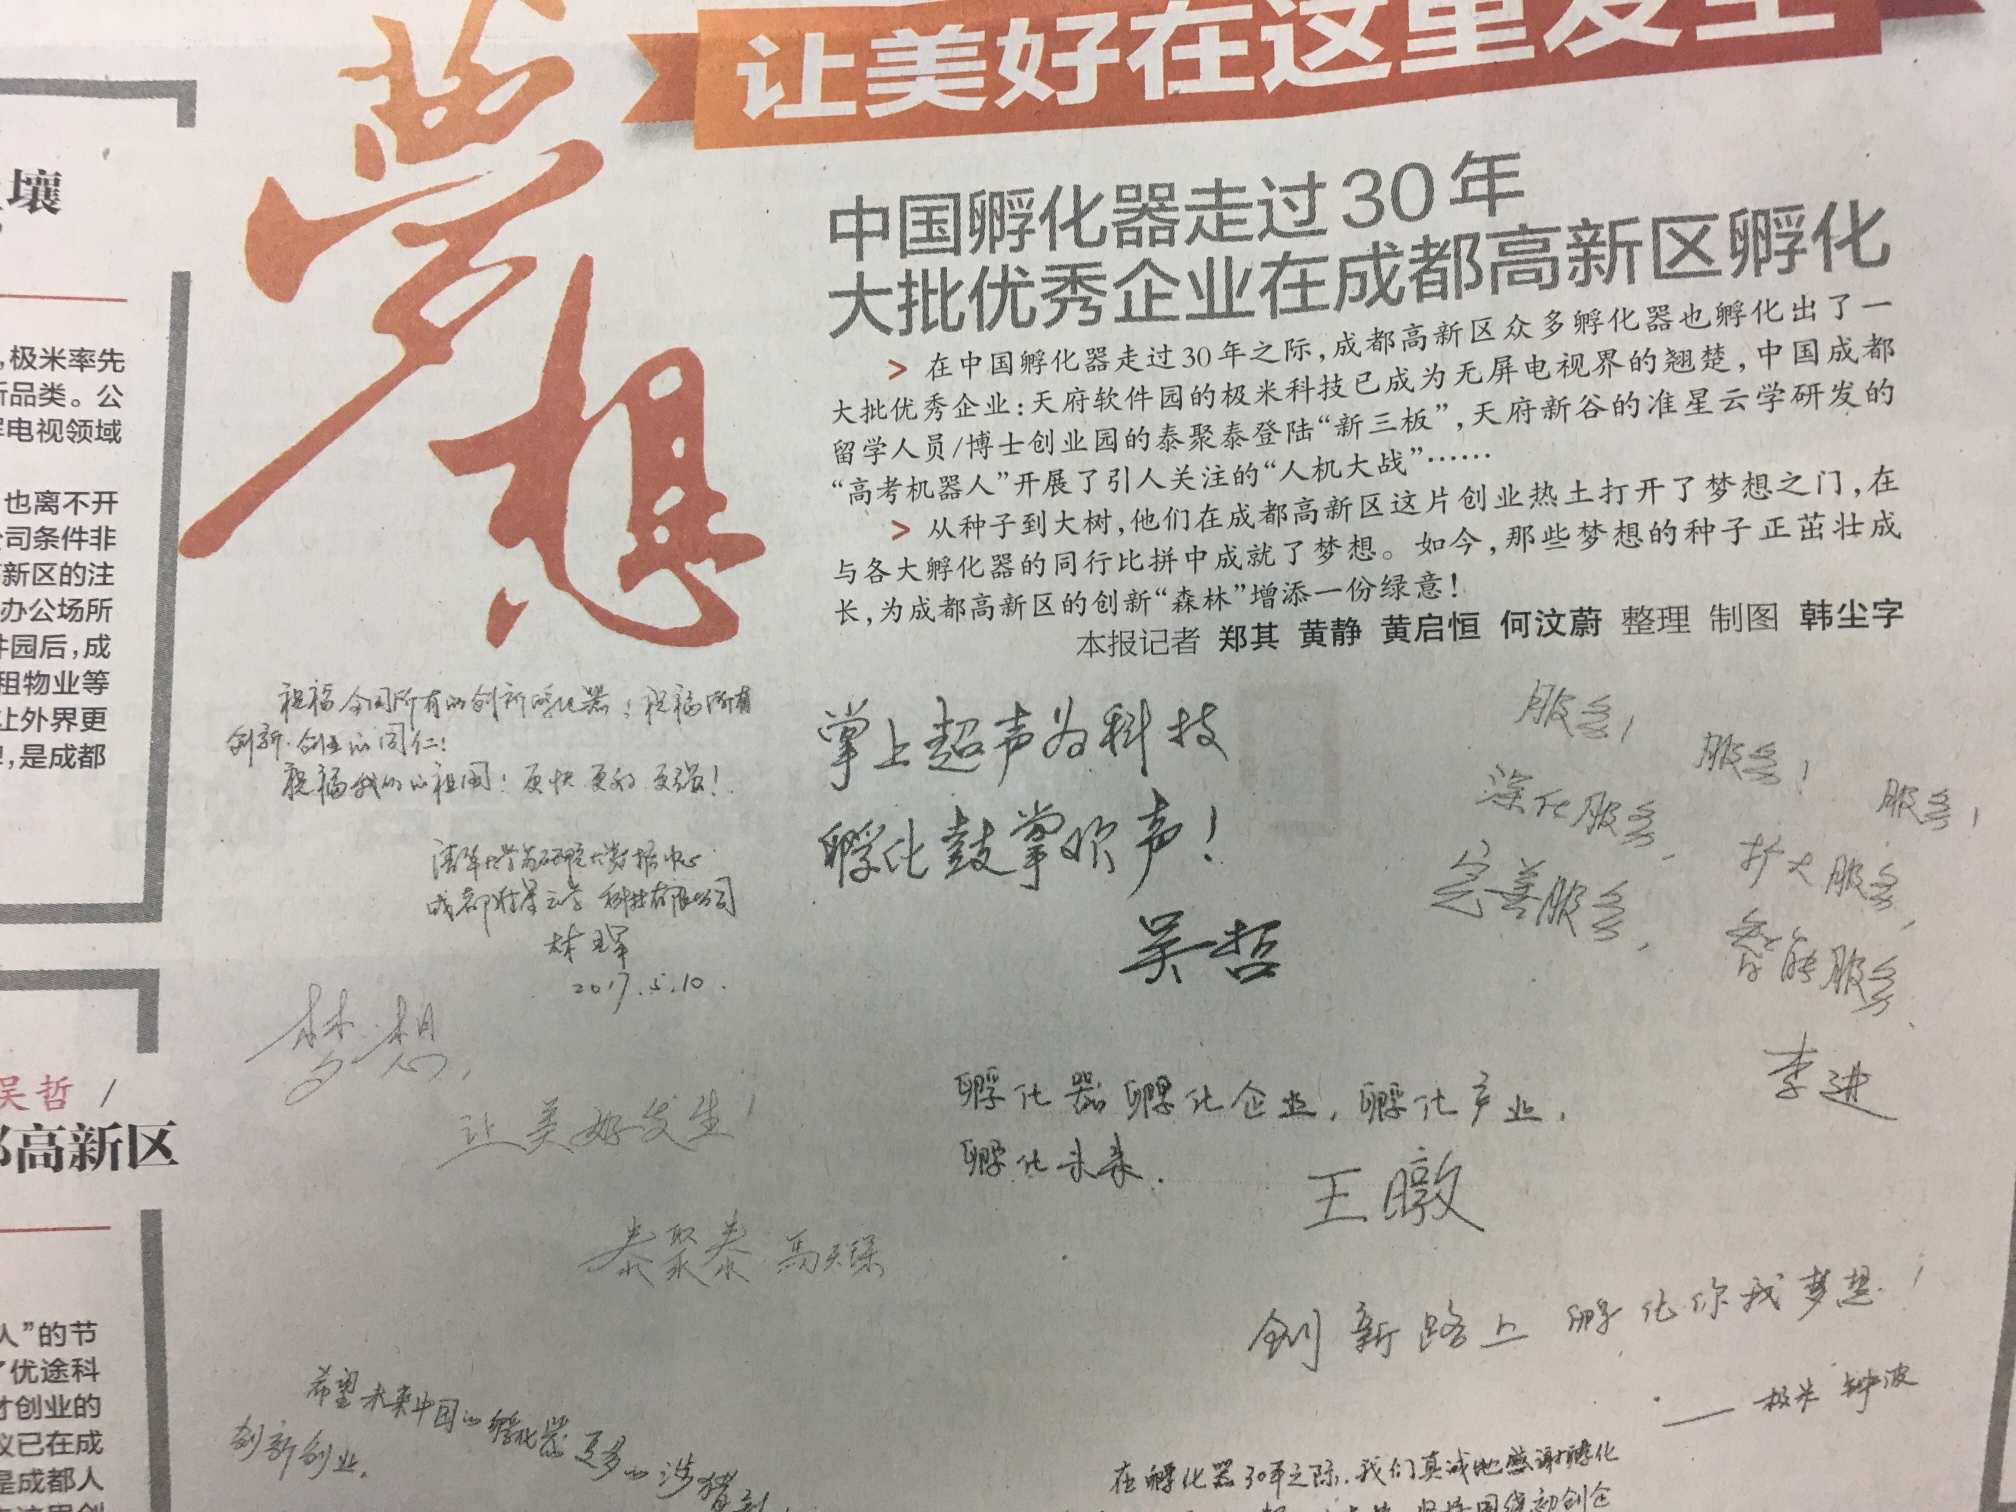 让美好在这里发生
梦想
中国孵化器走过30年
大批优秀企业在成都高新区孵化
> 在中国孵化器走过30年之际,成都高新区众多孵化器也孵化出了一
大批优秀企业:天府软件园的极米科技已成为无屏电视界的翘楚,中国成都
留学人员/博士创业园的泰聚泰登陆“新三板”,天府新谷的准星云学研发的
“高考机器人”开展了引人关注的“人机大战”……
> 从种子到大树,他们在成都高新区这片创业热土打开了梦想之门,在
与各大孵化器的同行比拼中成就了梦想。如今,那些梦想的种子正茁壮成
长,为成都高新区的创新“森林”增添一份绿意!
本报记者 郑其 黄静 黄启恒 何汶蔚 整理 制图 韩尘字
壤
,极米率先
新品类。公
屏电视领域
也离不开
公司条件非
高新区的注
办公场所
件园后,成
租物业等
让外界更
,是成都
吴哲 /
都高新区
人”的节
了优途科
才创业的
议已在成
是成都人
祝福全国所有的创新孵化器!祝福所有
创新·创业的同仁!
祝福我们的祖国!更快 更好 更强!
成都准星云学科技有限公司
2017.5.10.
掌上超声为科技
孵化鼓掌欢声!
吴哲
服务!
服务!
服务!
深化服务,
扩大服务,
完善服务,
智能服务、
李进
梦想,
让美好发生!
孵化器孵化企业,孵化产业,
孵化未来.
王暾
泰聚泰
创新路上 孵化你我梦想!
——极米 钟波
希望未来中国的孵化器更多的涉猎到
创新创业.
在孵化器30年之际,我们真诚地感谢孵化